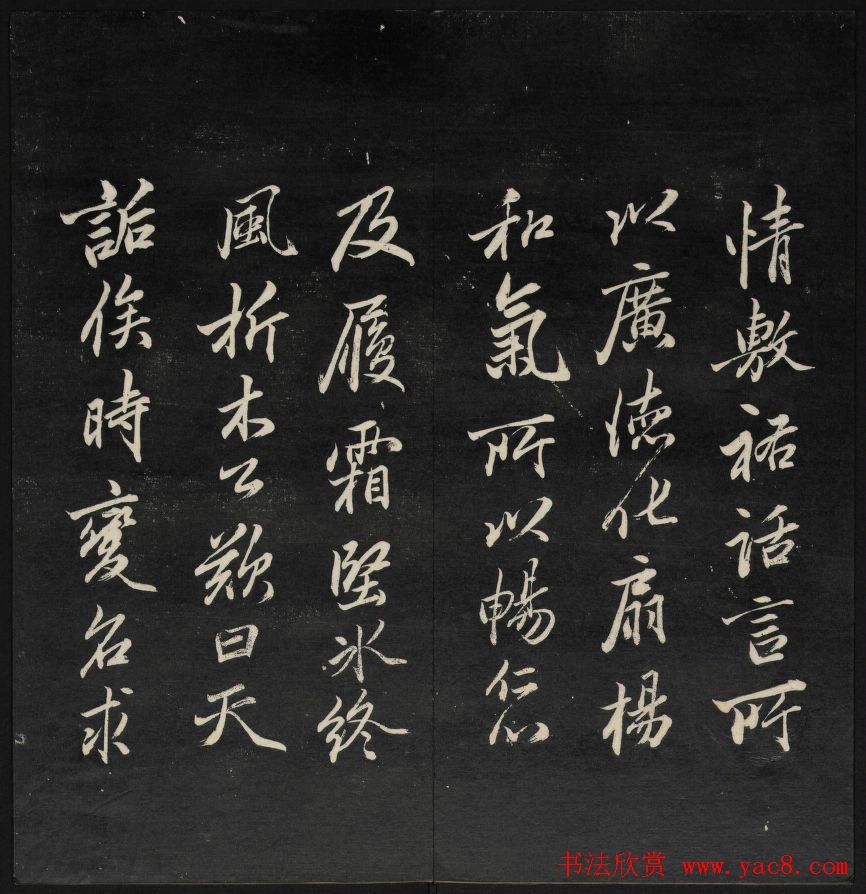 情敷裕話言所
以廣德化扇楊
和氣所以暢仁心
及履霜堅冰終
風折木公歎曰天
詬俟時變名求
书法欣赏 www.yac8.com